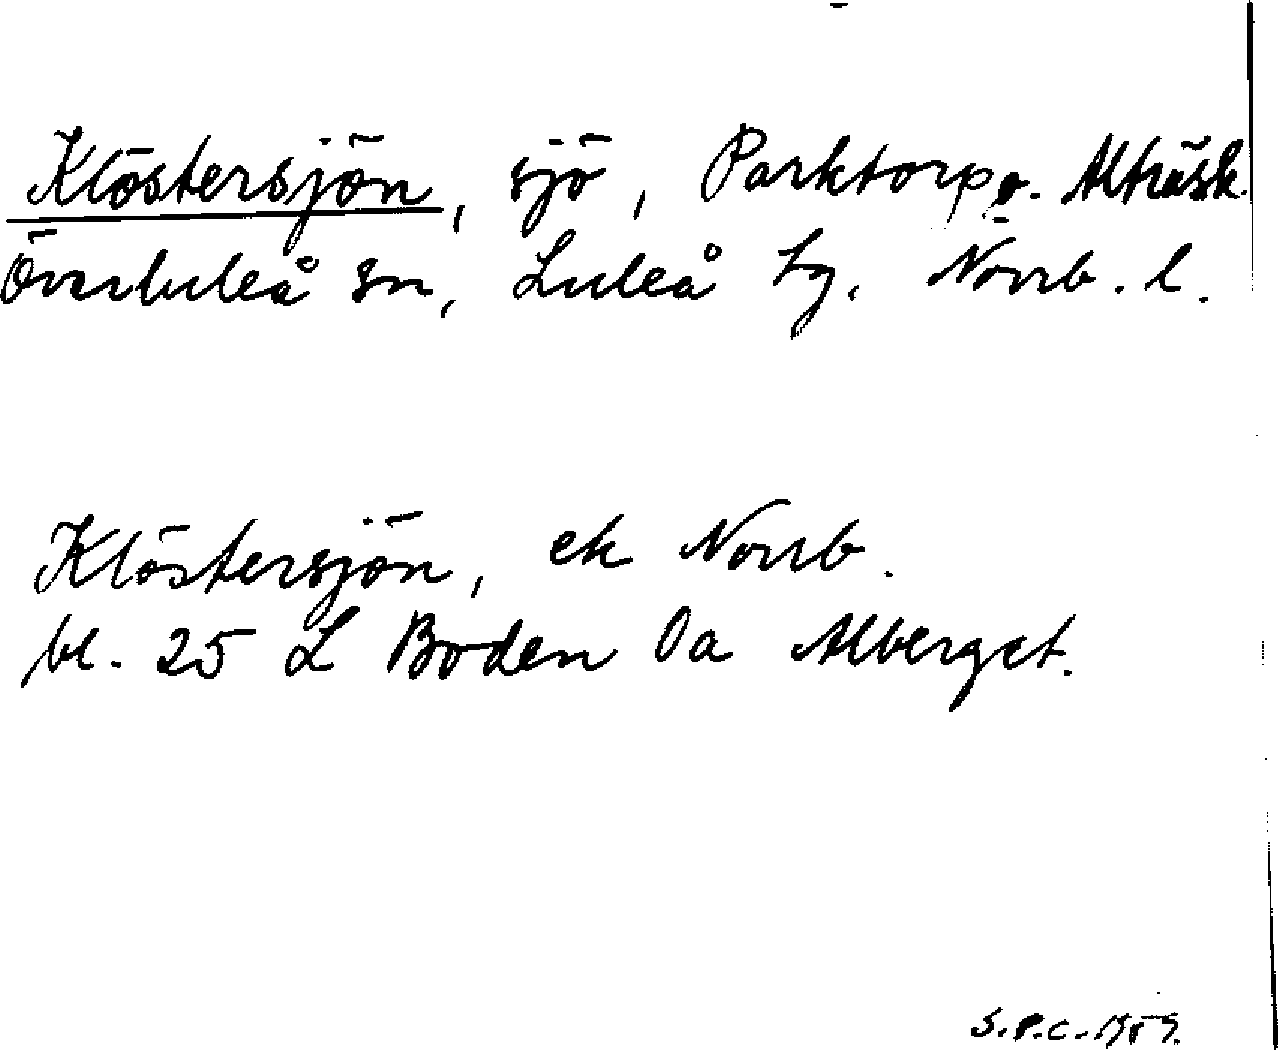 Klöstersjön, sjö, Parktorp o. Alträsk.
Överluleå sn, Luleå tg. Norrb. l.
Klöstersjön, ek Norrb.
bl. 25 L Boden 0a Alberget.
S.P.C. 1959.